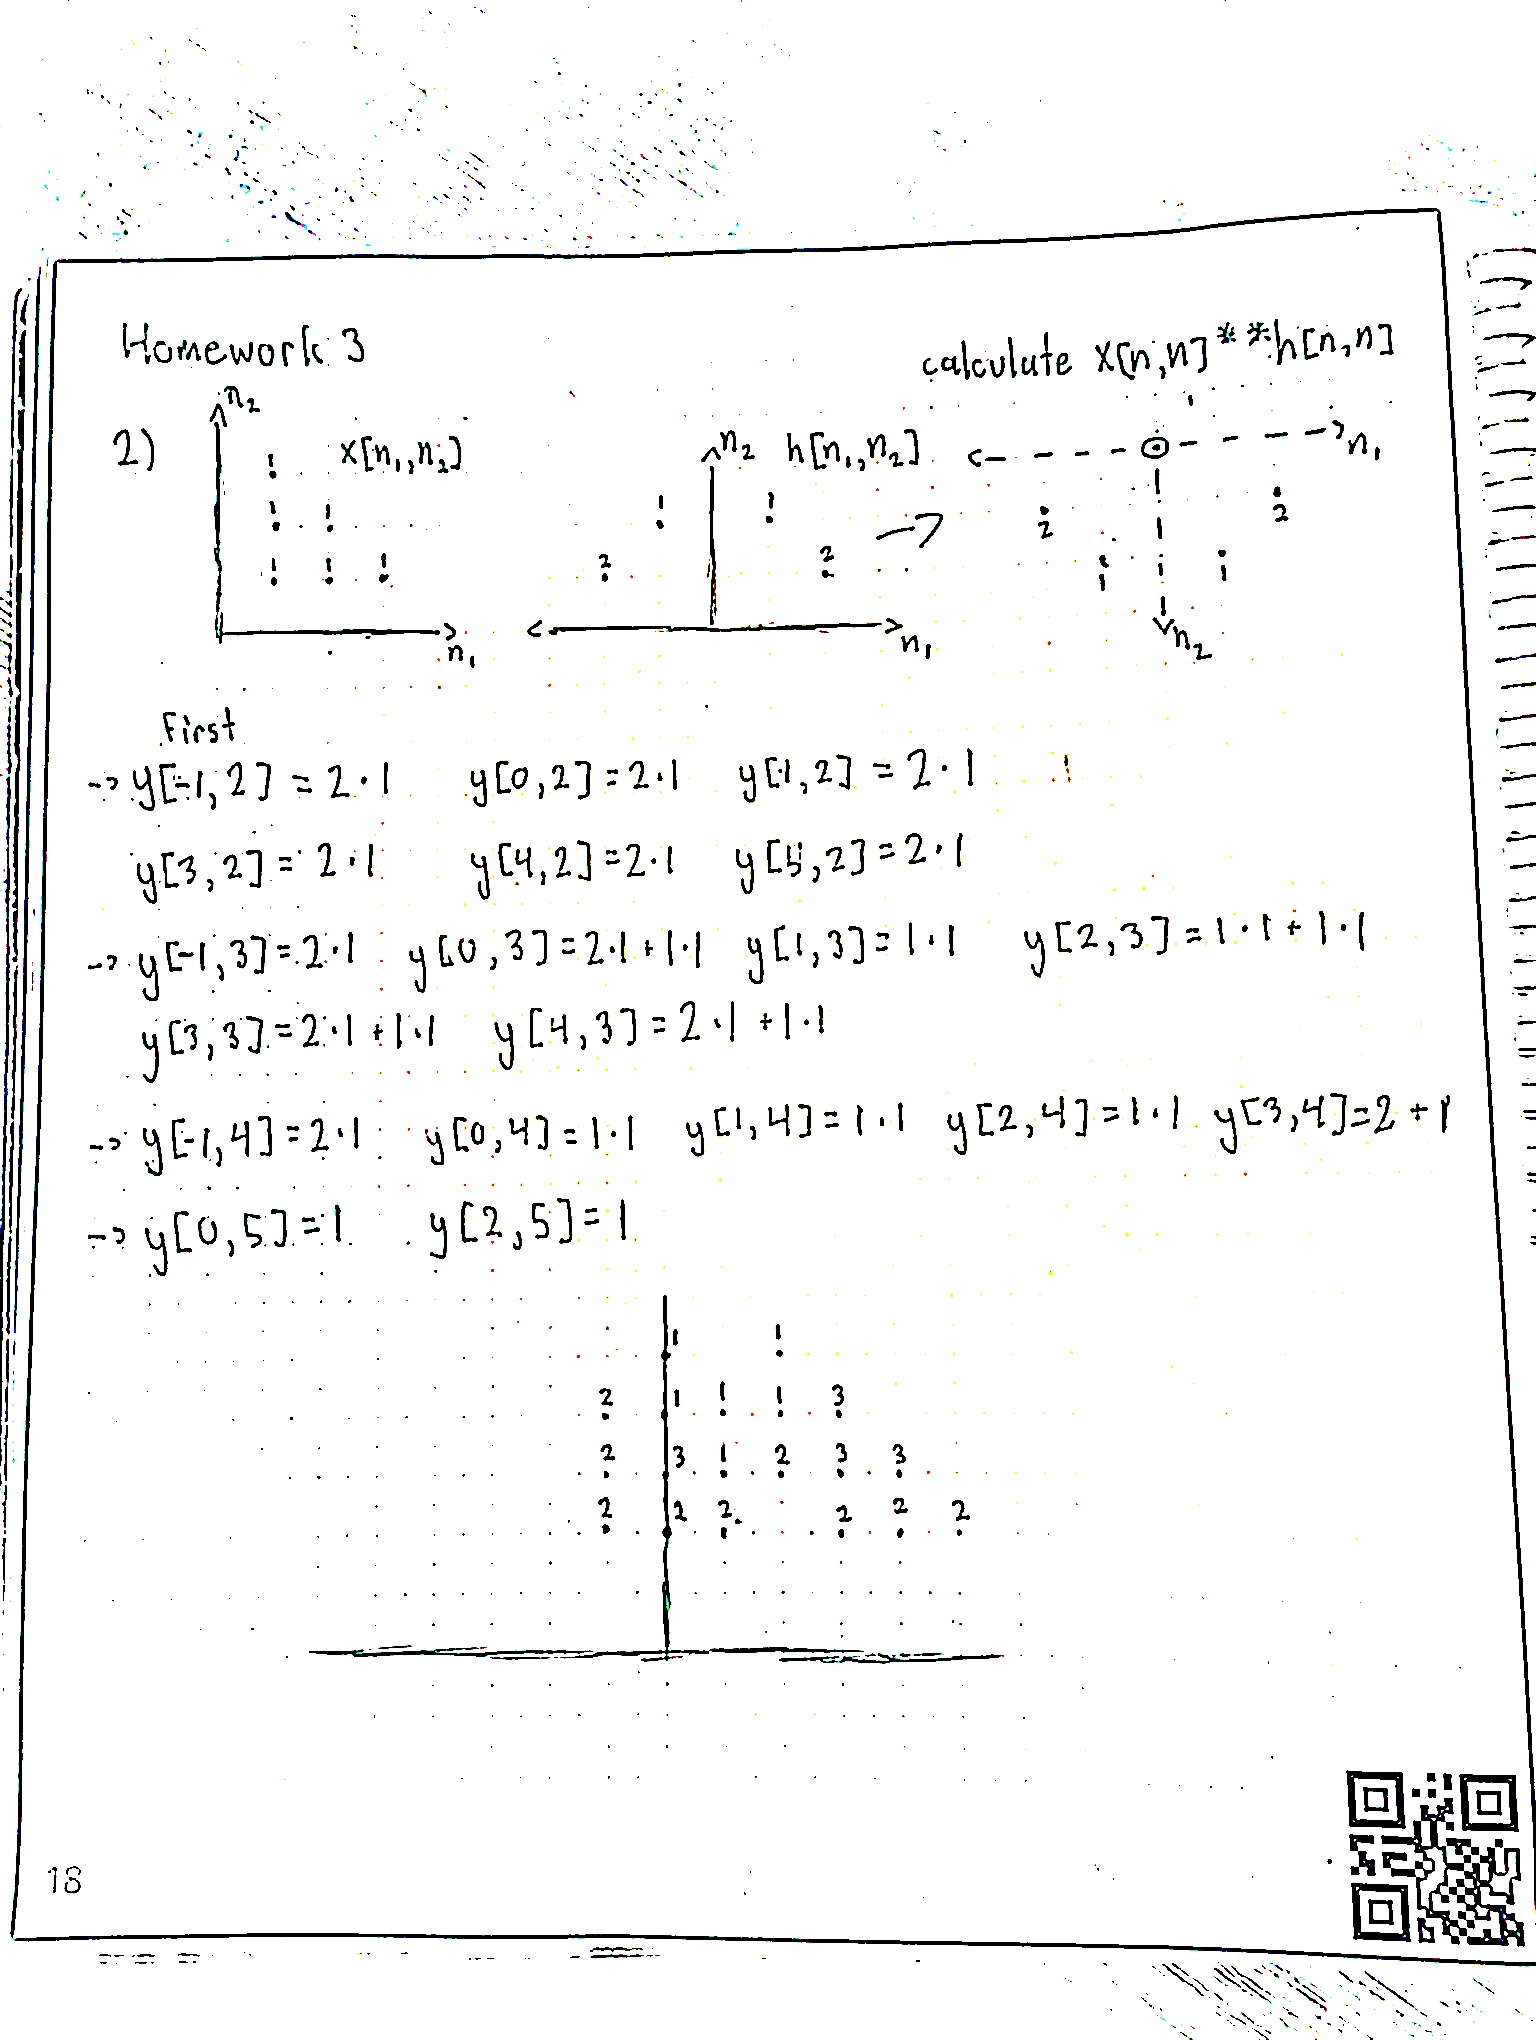 Homework 3
calculate x[n,n]**h[n,n]
2)
n₂ x[n₁,n₂] n₁
1
1 1
1 1 1
n₂ h[n₁,n₂] n₁
1 1
2 2
n₁ n₂
2 2
1 1
First
-> y[-1,2] = 2·1 y[0,2]=2·1 y[1,2] = 2·1
y[3,2] = 2·1 y[4,2]=2·1 y[5,2]=2·1
-> y[-1,3]=2·1 y[0,3]=2·1+1·1 y[1,3]=1·1 y[2,3]=1·1+1·1
y[3,3]=2·1+1·1 y[4,3]=2·1+1·1
-> y[-1,4]=2·1 y[0,4]=1·1 y[1,4]=1·1 y[2,4]=1·1 y[3,4]=2+1
-> y[0,5]=1 y[2,5]=1
1 1
2 1 1 1 3
2 3 1 2 3 3
2 2 2 2 2 2
18